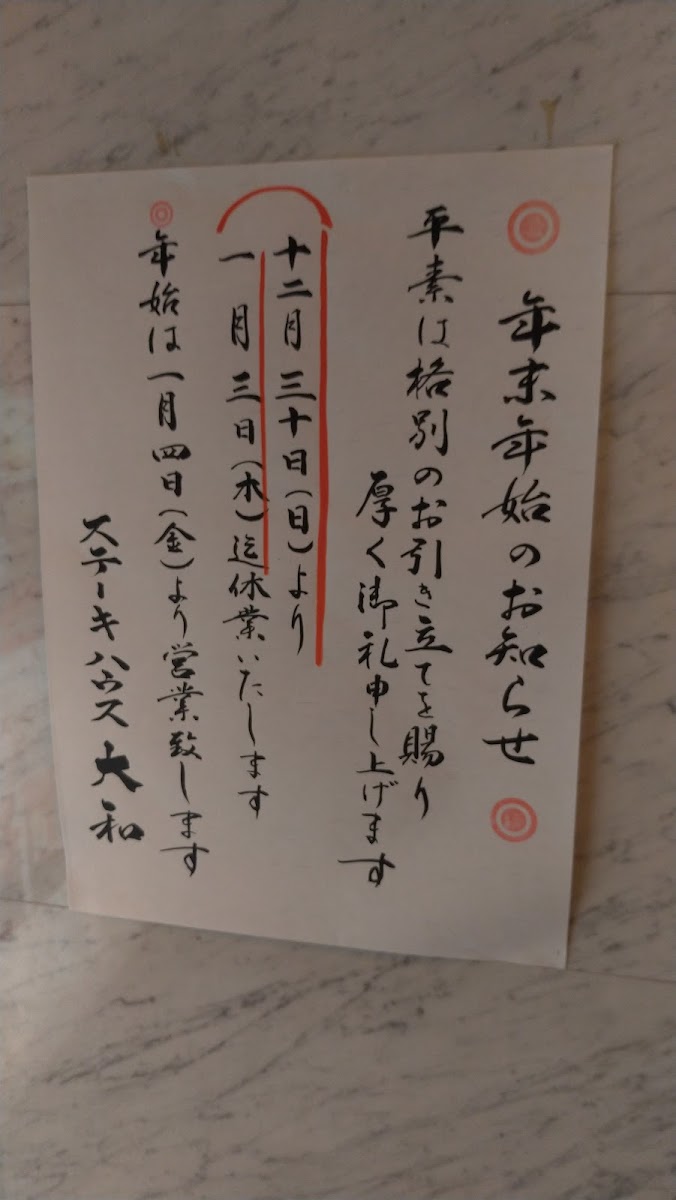 年末年始のお知らせ
平素は格別のお引き立てを賜り
厚く御礼申し上げます
十二月三十日(日)より
一月三日(木)迄休業いたします
年始は一月四日(金)より営業致します
ステーキハウス大和